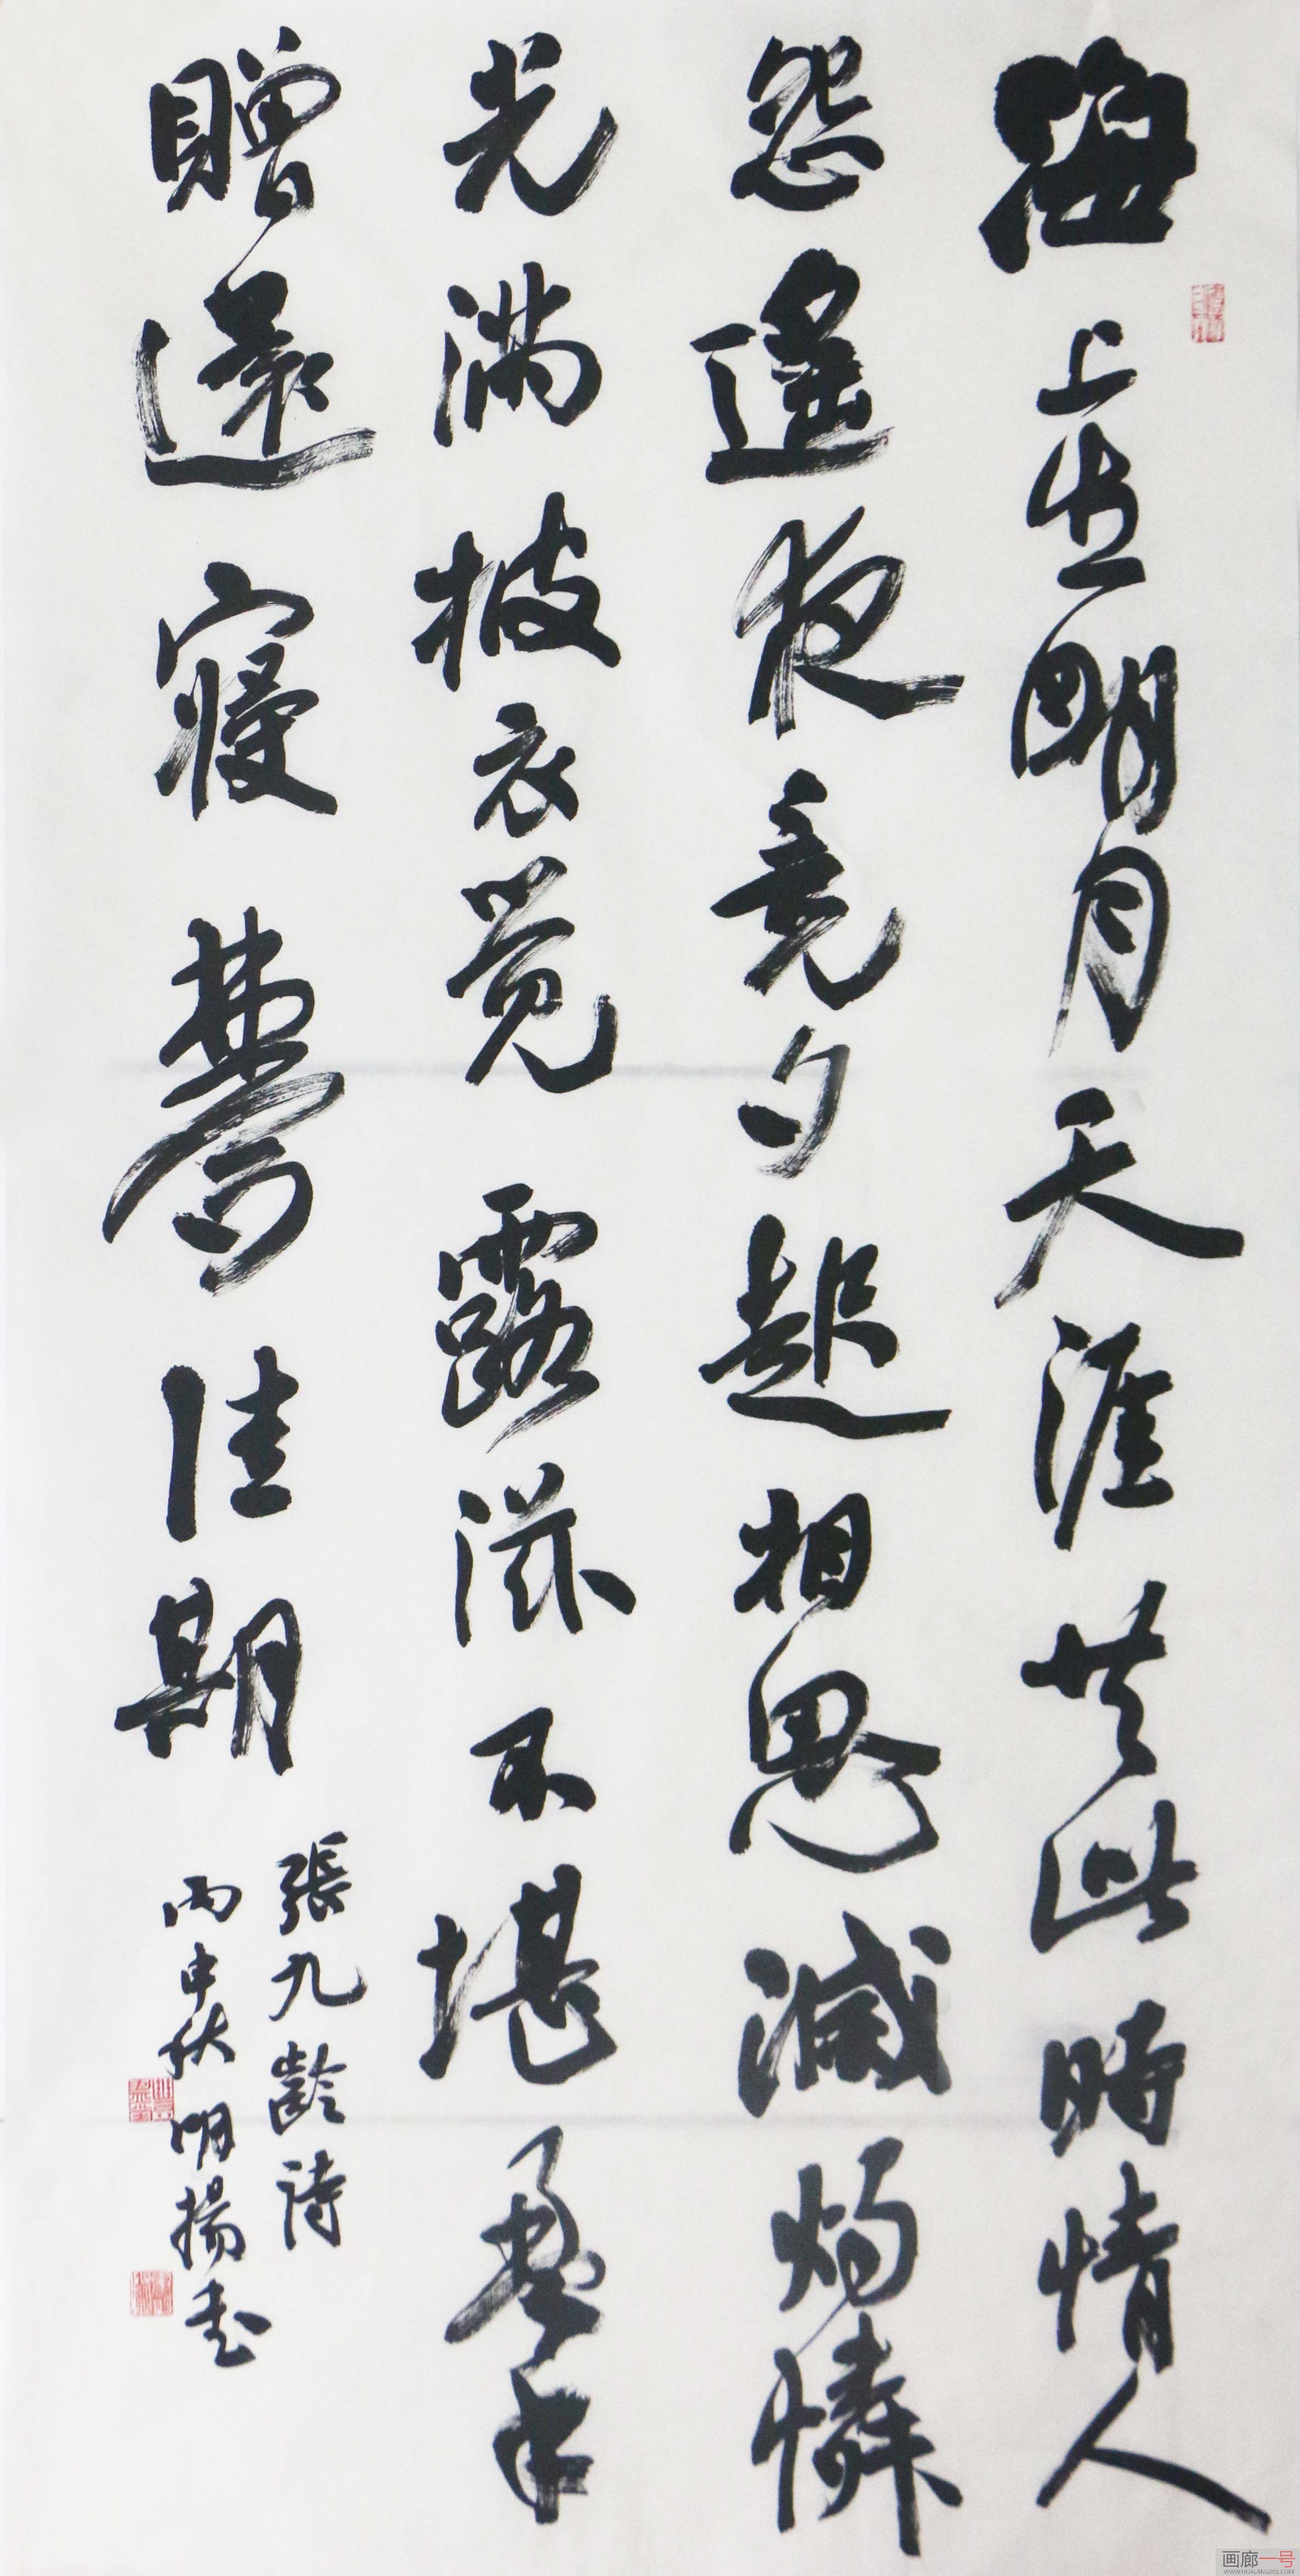 海上生明月天涯共此時情人
怨遙夜竟夕起相思滅燭憐
光满披衣覺露滋不堪盈手
贈還寢夢佳期
張九齡詩
丙申伏明揚书
画廊一号
WWW.HUALANG001.COM